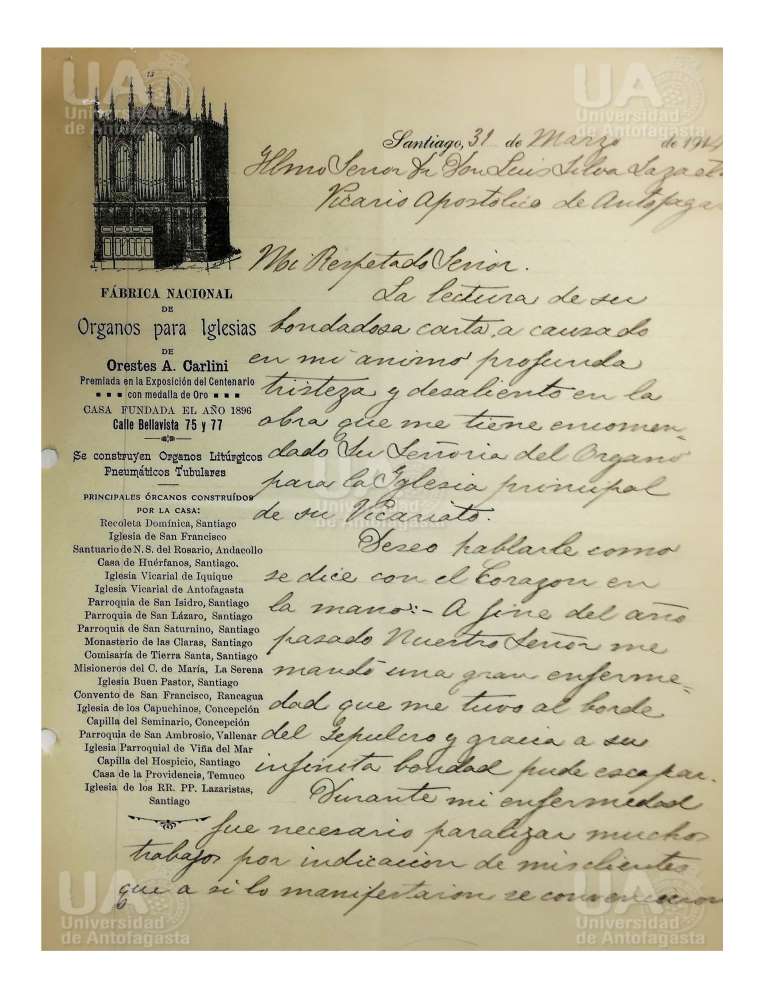 UA
Universidad
de Antofagasta
UA
Universidad
de Antofagasta
Santiago, 31 de Marzo de 1914
Illmo Señor Dr Don Luis Silva Lazaeta
Vicario Apostólico de Antofaga
Mi Respetado Señor.
La lectura de su
bondadosa carta, a causado
en mi animo profunda
tristeza y desaliento en la
obra que me tiene encomen-
dado Su Señoria del Organo
para la Iglesia principal
de su Vicariato.
Deseo hablarle como
se dice con el Corazon en
la mano:- A fine del año
pasado Nuestro Señor me
mandó una gran enferme-
dad que me tuvo al borde
del Sepulcro y gracia a su
infinita bondad pude escapar.
Durante mi enfermedad
fue necesario paralizar muchos
trabajos por indicacion de mis clientes
que a si lo manifestaron se
FÁBRICA NACIONAL
DE
Organos para Iglesias
DE
Orestes A. Carlini
Premiada en la Exposición del Centenario
con medalla de Oro
CASA FUNDADA EL AÑO 1896
Calle Bellavista 75 y 77
Se construyen Organos Litúrgicos
Pneumáticos Tubulares
PRINCIPALES ÓRGANOS CONSTRUÍDOS
POR LA CASA:
Recoleta Domínica, Santiago
Iglesia de San Francisco
Santuario de N. S. del Rosario, Andacollo
Casa de Huérfanos, Santiago.
Iglesia Vicarial de Iquique
Iglesia Vicarial de Antofagasta
Parroquia de San Isidro, Santiago
Parroquia de San Lázaro, Santiago
Parroquia de San Saturnino, Santiago
Monasterio de las Claras, Santiago
Comisaría de Tierra Santa, Santiago
Misioneros del C. de María, La Serena
Iglesia Buen Pastor, Santiago
Convento de San Francisco, Rancagua
Iglesia de los Capuchinos, Concepción
Capilla del Seminario, Concepción
Parroquia de San Ambrosio, Vallenar
Iglesia Parroquial de Viña del Mar
Capilla del Hospicio, Santiago
Casa de la Providencia, Temuco
Iglesia de los RR. PP. Lazaristas,
Santiago
UA
Universidad
de Antofagasta
UA
Universidad
de Antofagasta
UA
Universidad
de Antofagasta